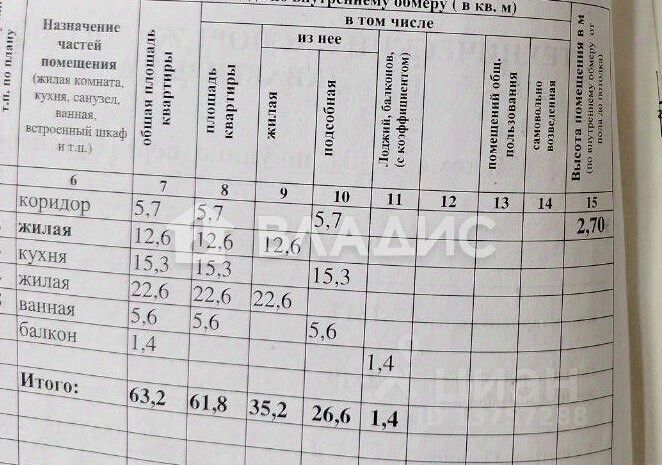 внутреннему обмеру ( в кв. м)
т.п. по плану
Назначение
частей
помещения
(жилая комната,
кухня, санузел,
ванная,
встроенный шкаф
и т.п.)
общая площадь
квартиры
в том числе
площадь
квартиры
из нее
жилая
подсобная
Лоджий, балконов,
(с коэффициентом)
помещений общ.
пользования
самовольно
возведенная
Высота помещения в м
(по внутреннему обмеру от
пола до потолка)
6 7 8 9 10 11 12 13 14 15
коридор 5,7 5,7 5,7 2,70
жилая 12,6 12,6 12,6
кухня 15,3 15,3 15,3
жилая 22,6 22,6 22,6
ванная 5,6 5,6 5,6
балкон 1,4 1,4
Итого: 63,2 61,8 35,2 26,6 1,4
ВЛАДИС
циан